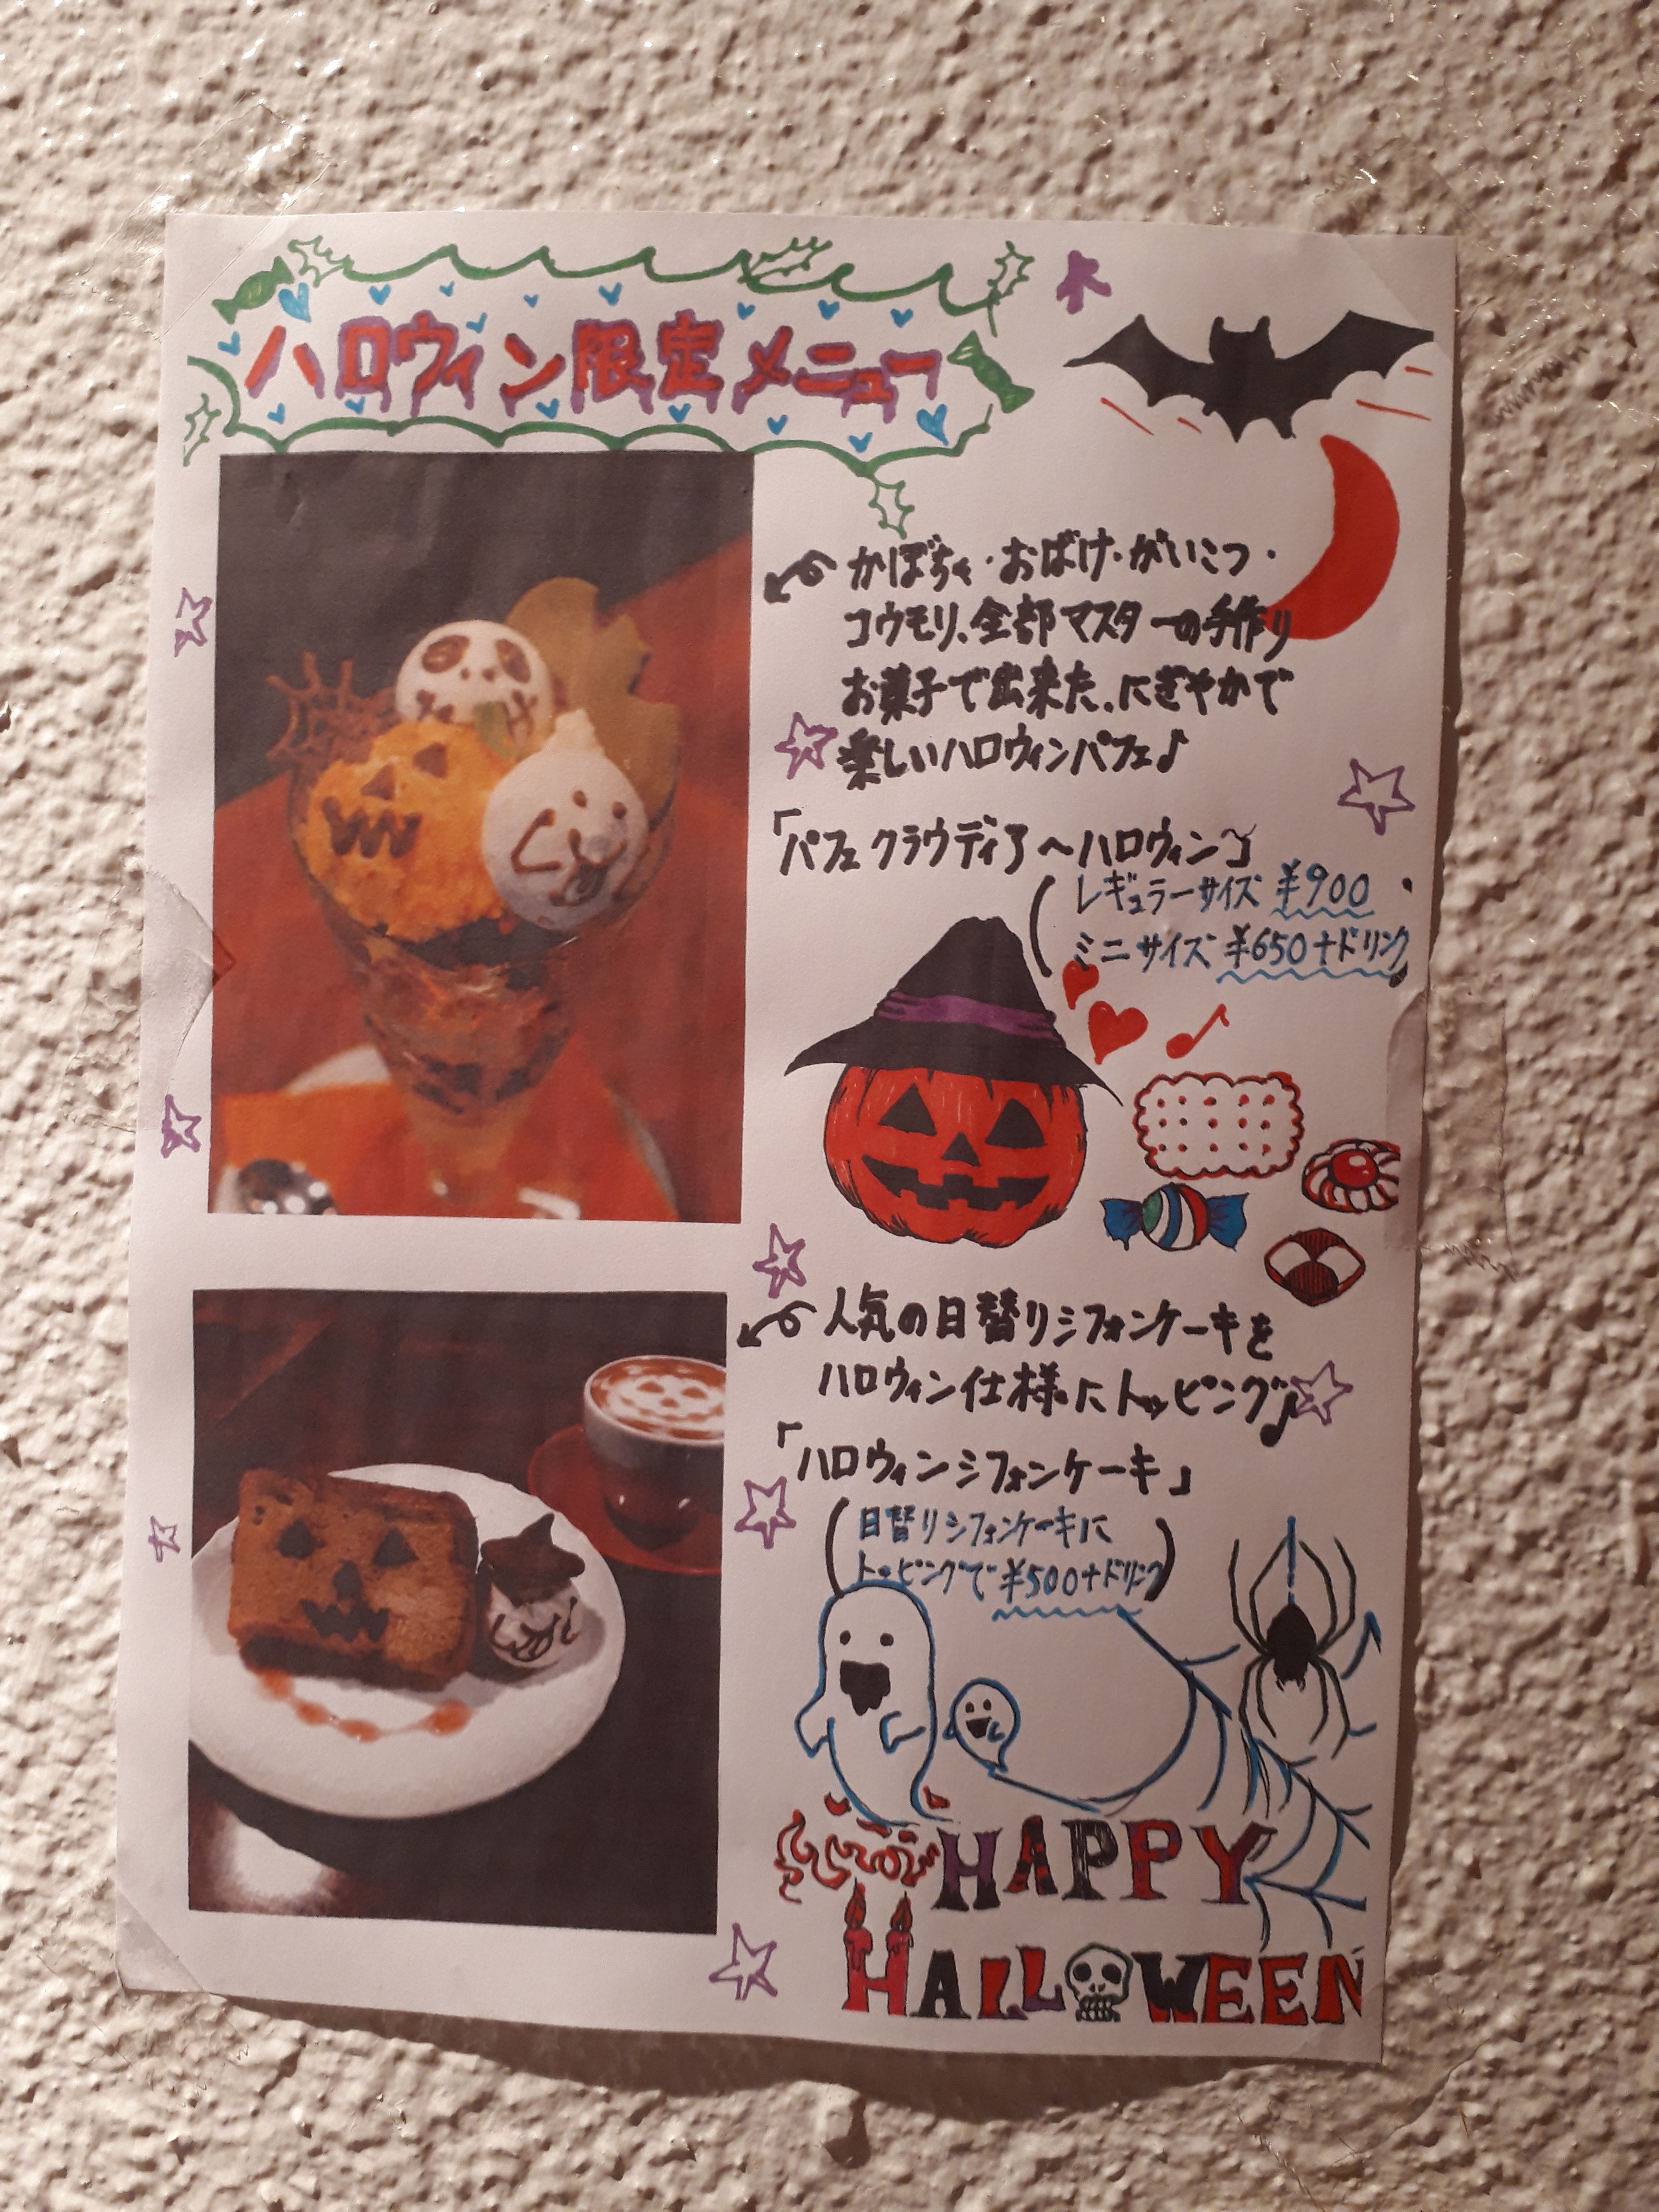 ハロウィン限定メニュー
かぼちゃ・おばけ・がいこつ・
コウモリ、全部マスターの手作り
お菓子で出来た、にぎやかで
楽しいハロウィンパフェ♪
「パフェ クラウディア〜ハロウィン〜」
(レギュラーサイズ ¥900
ミニサイズ ¥650+ドリンク)
人気の日替りシフォンケーキを
ハロウィン仕様にトッピング♪
「ハロウィンシフォンケーキ」
(日替りシフォンケーキに
トッピングで ¥500+ドリンク)
HAPPY
HALLOWEEN